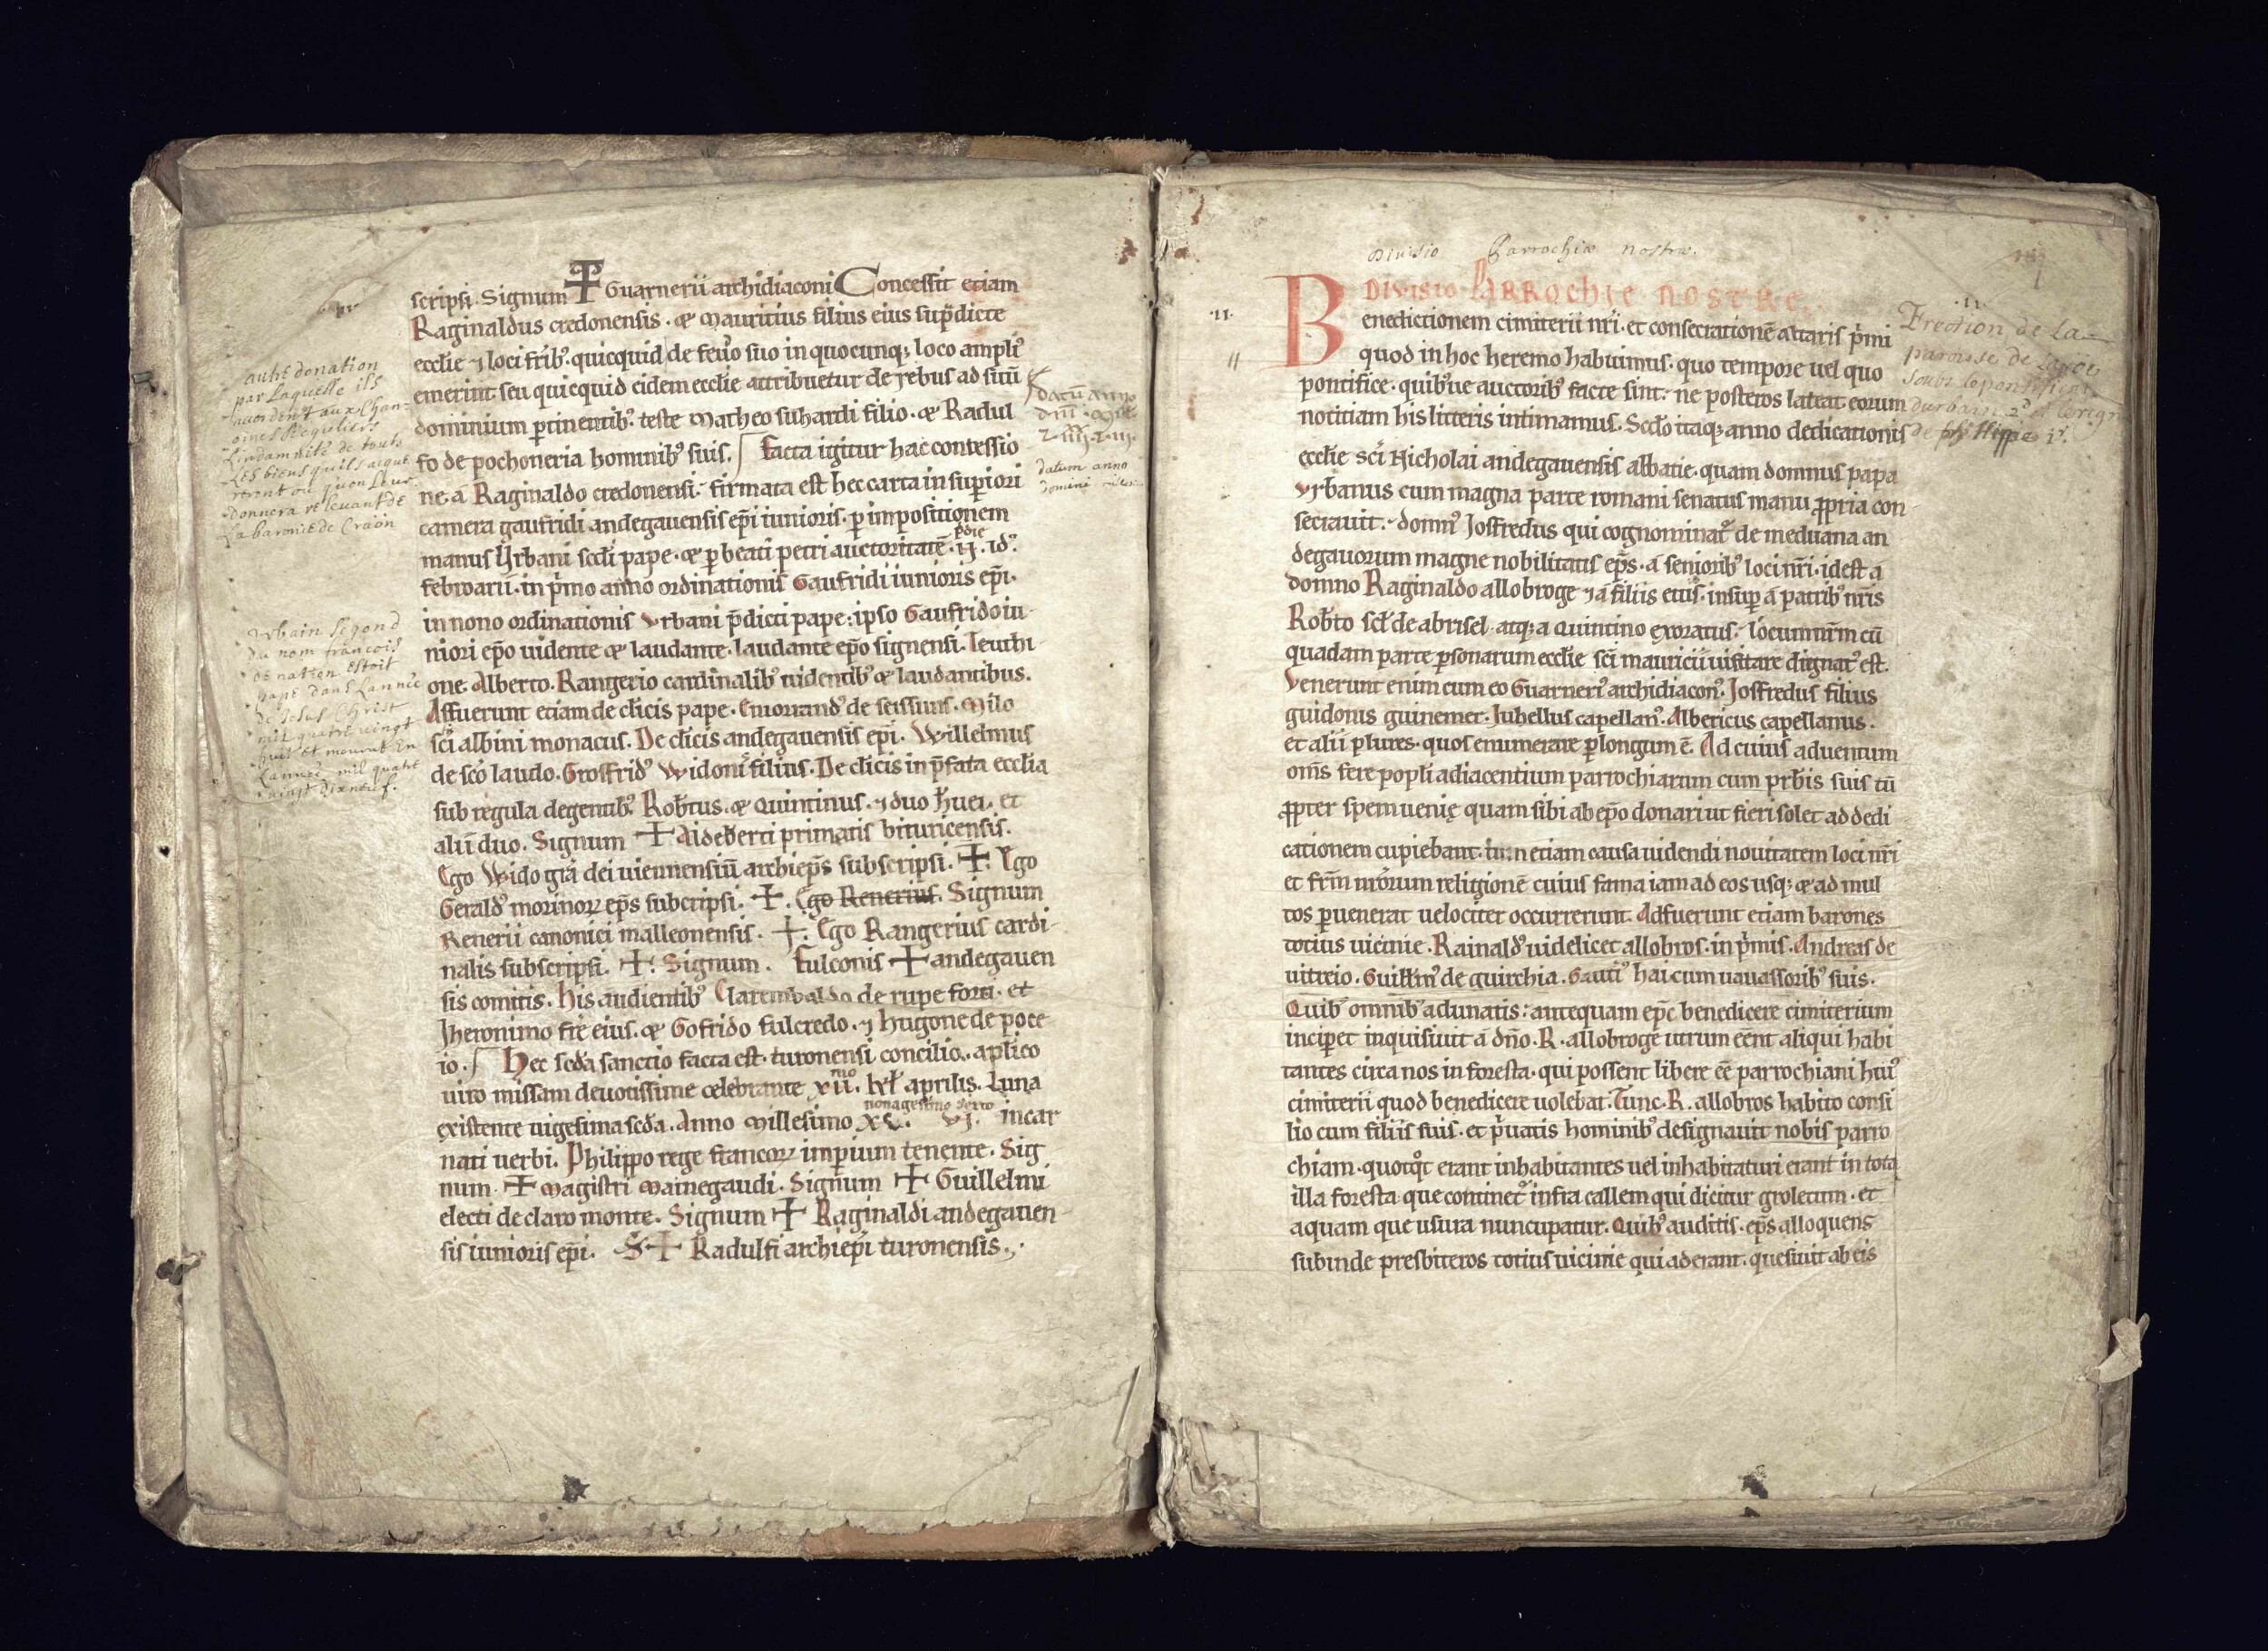 scripsi. Signum ☩ Guarnerii archidiaconi Concessit etiam
Raginaldus credonensis. & Mauritius filius eius sup̄dicte
ecclīe ⁊ loci frīb᷒. quicquid de feuo suo in quocunq; loco ampli᷒
emerint seu quicquid eidem ecclīe attribuetur de rebus ad suū
dominium ꝑtinentib᷒. teste Matheo suhardi filio. & Radul
fo de pochoneria hominib᷒ suis. Facta igitur hac concessio
ne a Raginaldo credonensi. firmata est hec carta in supiori
camera gaufridi andegauensis ep̄i iunioris. ꝑ impositionem
manus Urbani scdī pape. & ꝑ beati petri auctoritatē. pdie .II. id᷒.
februarii. in pͥmo anno ordinationis Gaufridi iunioris ep̄i.
in nono ordinationis Vrbani p̄dicti pape: ipso Gaufrido iu
niori ep̄o uidente & laudante. laudante ep̄o signensi. Teuthi
one. Alberto. Rangerio cardinalib᷒ uidentib᷒ & laudantibus.
Affuerunt etiam de clīcis pape. Emorrand᷒ de seissuns. Milo
scī albini monacus. De clīcis andegauensis ep̄i. Willelmus
de scō laudo. Grosfrid᷒ Widonis filius. De clīcis in p̄fata ecclīa
sub regula degentib᷒. Rob̄tus. & Quintinus. ⁊ duo h̄uei. et
alii duo. Signum ☩ Aideberti primatis bituricensis.
Ego Wido grā dei uiennensiū archiep̄s subscripsi. ☩. Ego
Gerald᷒ morinoꝝ ep̄s subcripsi. ☩. Ego Renerius. Signum
Renerii canonici malleonensis. ☩. Ego Rangerius cardi
nalis subscripsi. ☩. Signum. Fulconis ☩ andegauen
sis comitis. His audientib᷒ Clarembaldo de rupe forti. et
Jheronimo fr̄e eius. & Gofrido fulcredo. ⁊ hugone de poce
io. Hec scdā sanctio facta est. turonensi concilio. aplico
uiro missam deuotissime celebrante xii.mo kł aprilis. Luna
existente uigesima scdā. Anno Millesimo xc. vj. nonagesimo sexto incar
nati uerbi. Philippo rege francoꝝ imperium tenente. Sig
num. ☩ Magistri Mainegaudi. Signum ☩ Guillelmi
electi de claro monte. Signum ☩ Raginaldi andegauen
sis iunioris ep̄i. S ☩ Radulfi archiep̄i turonensis.
par laquelle ils
Lindamnité de touts
donnera relevant de
La baronie de Craon
Vrbain segond
du nom francois
de nation estoit
pape dans lannée
de Jesus Christ
mil quatre vingt
huit et mourut en
Lannée mil quatre
vingt dixneuf.
datum anno
domini
Diuisio Parrochiæ nostræ.
DIVISIO PARROCHIE NOSTRE.
.II.
Benedictionem cimiterii nrī. et consecrationē altaris pͥmi
quod in hoc heremo habuimus. quo tempore uel quo
pontifice. quib᷒ue auctorib᷒ facte sint: ne posteros lateat eorum
notitiam his litteris intimamus. Scdō itaq; anno dedicationis
ecclīe scī Nicholai andegauensis abbatie. quam domnus papa
Vrbanus cum magna parte romani senatus manu ꝓpria con
secrauit. domn᷒ Josfredus qui cognominat᷒ de meduana an
degauorum magne nobilitatis ep̄s. a seniorib᷒ loci nrī. id est a
domno Raginaldo allobroge ⁊ a filiis eius. insup a patrib᷒ nr̄is
Rob̄to scł de abrisel. atq; a Quintino exoratus. locum nrm̄ cū
quadam parte ꝑsonarum ecclīe scī mauricii uisitare dignat᷒ est.
Venerunt enim cum eo Guarneri᷒ archidiacon᷒. Josfredus filius
guidonis guinemer. Juhellus capellan᷒. Albericus capellanus.
et alii plures. quos enumerare ꝑlongum ē. Ad cuius aduentum
om̄s fere popli adiacentium parrochiarum cum prb̄is suis tū
ꝓpter spem uenię quam sibi ab ep̄o donari ut fieri solet ad dedi
cationem cupiebant. tum etiam causa uidendi nouitatem loci nrī
et frm̄ nr̄orum religionē cuius fama iam ad eos usq; & ad mul
tos ꝑuenerat uelociter occurrerunt. Adfuerunt etiam barones
totius uicinie. Rainald᷒ uidelicet allobros. in pͥmis. Andreas de
uitreio. Guillm̄᷒ de guirchia. Gauti᷒ hai cum uauassorib᷒ suis.
Quib᷒ omnib᷒ adunatis: antequam ep̄c benedicere cimiterium
inciperet inquisiuit a dn̄o. R. allobroge utrum eēnt aliqui habi
tantes circa nos in foresta. qui possent libere eē parrochiani hui᷒
cimiterii quod benedicere uolebat. Tunc. R. allobros habito consi
lio cum filiis suis. et pͥuatis hominib᷒ designauit nobis parro
chiam. quotqͦt erant inhabitantes uel inhabitaturi erant in tota
illa foresta que continet᷒ infra callem qui dicitur groletum. et
aquam que usura nuncupatur. Quib᷒ auditis. ep̄s alloquens
subinde presbiteros totius uicinie qui aderant. quesiuit ab eis
.II.
Erection de la
paroisse de
soubs le pontificat
durbain 2ᵉ et
de phillippe 1ᵉʳ.